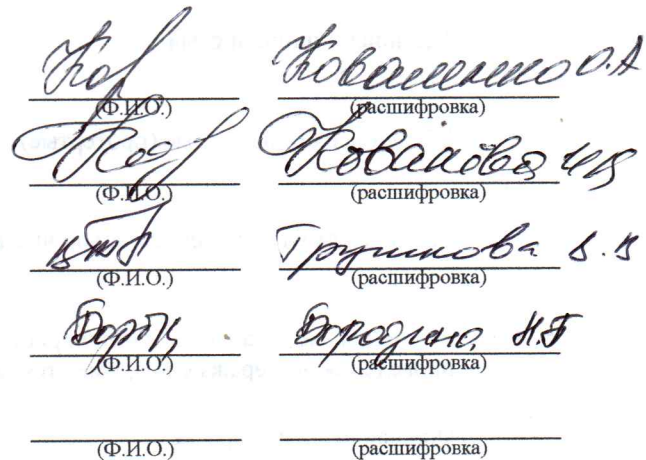 Ков Коваленко О.А
(Ф.И.О.) (расшифровка)
Ковалёва
(Ф.И.О.) (расшифровка)
Трушкова В.В
(Ф.И.О.) (расшифровка)
Бородина Н.Г
(Ф.И.О.) (расшифровка)
(Ф.И.О.) (расшифровка)